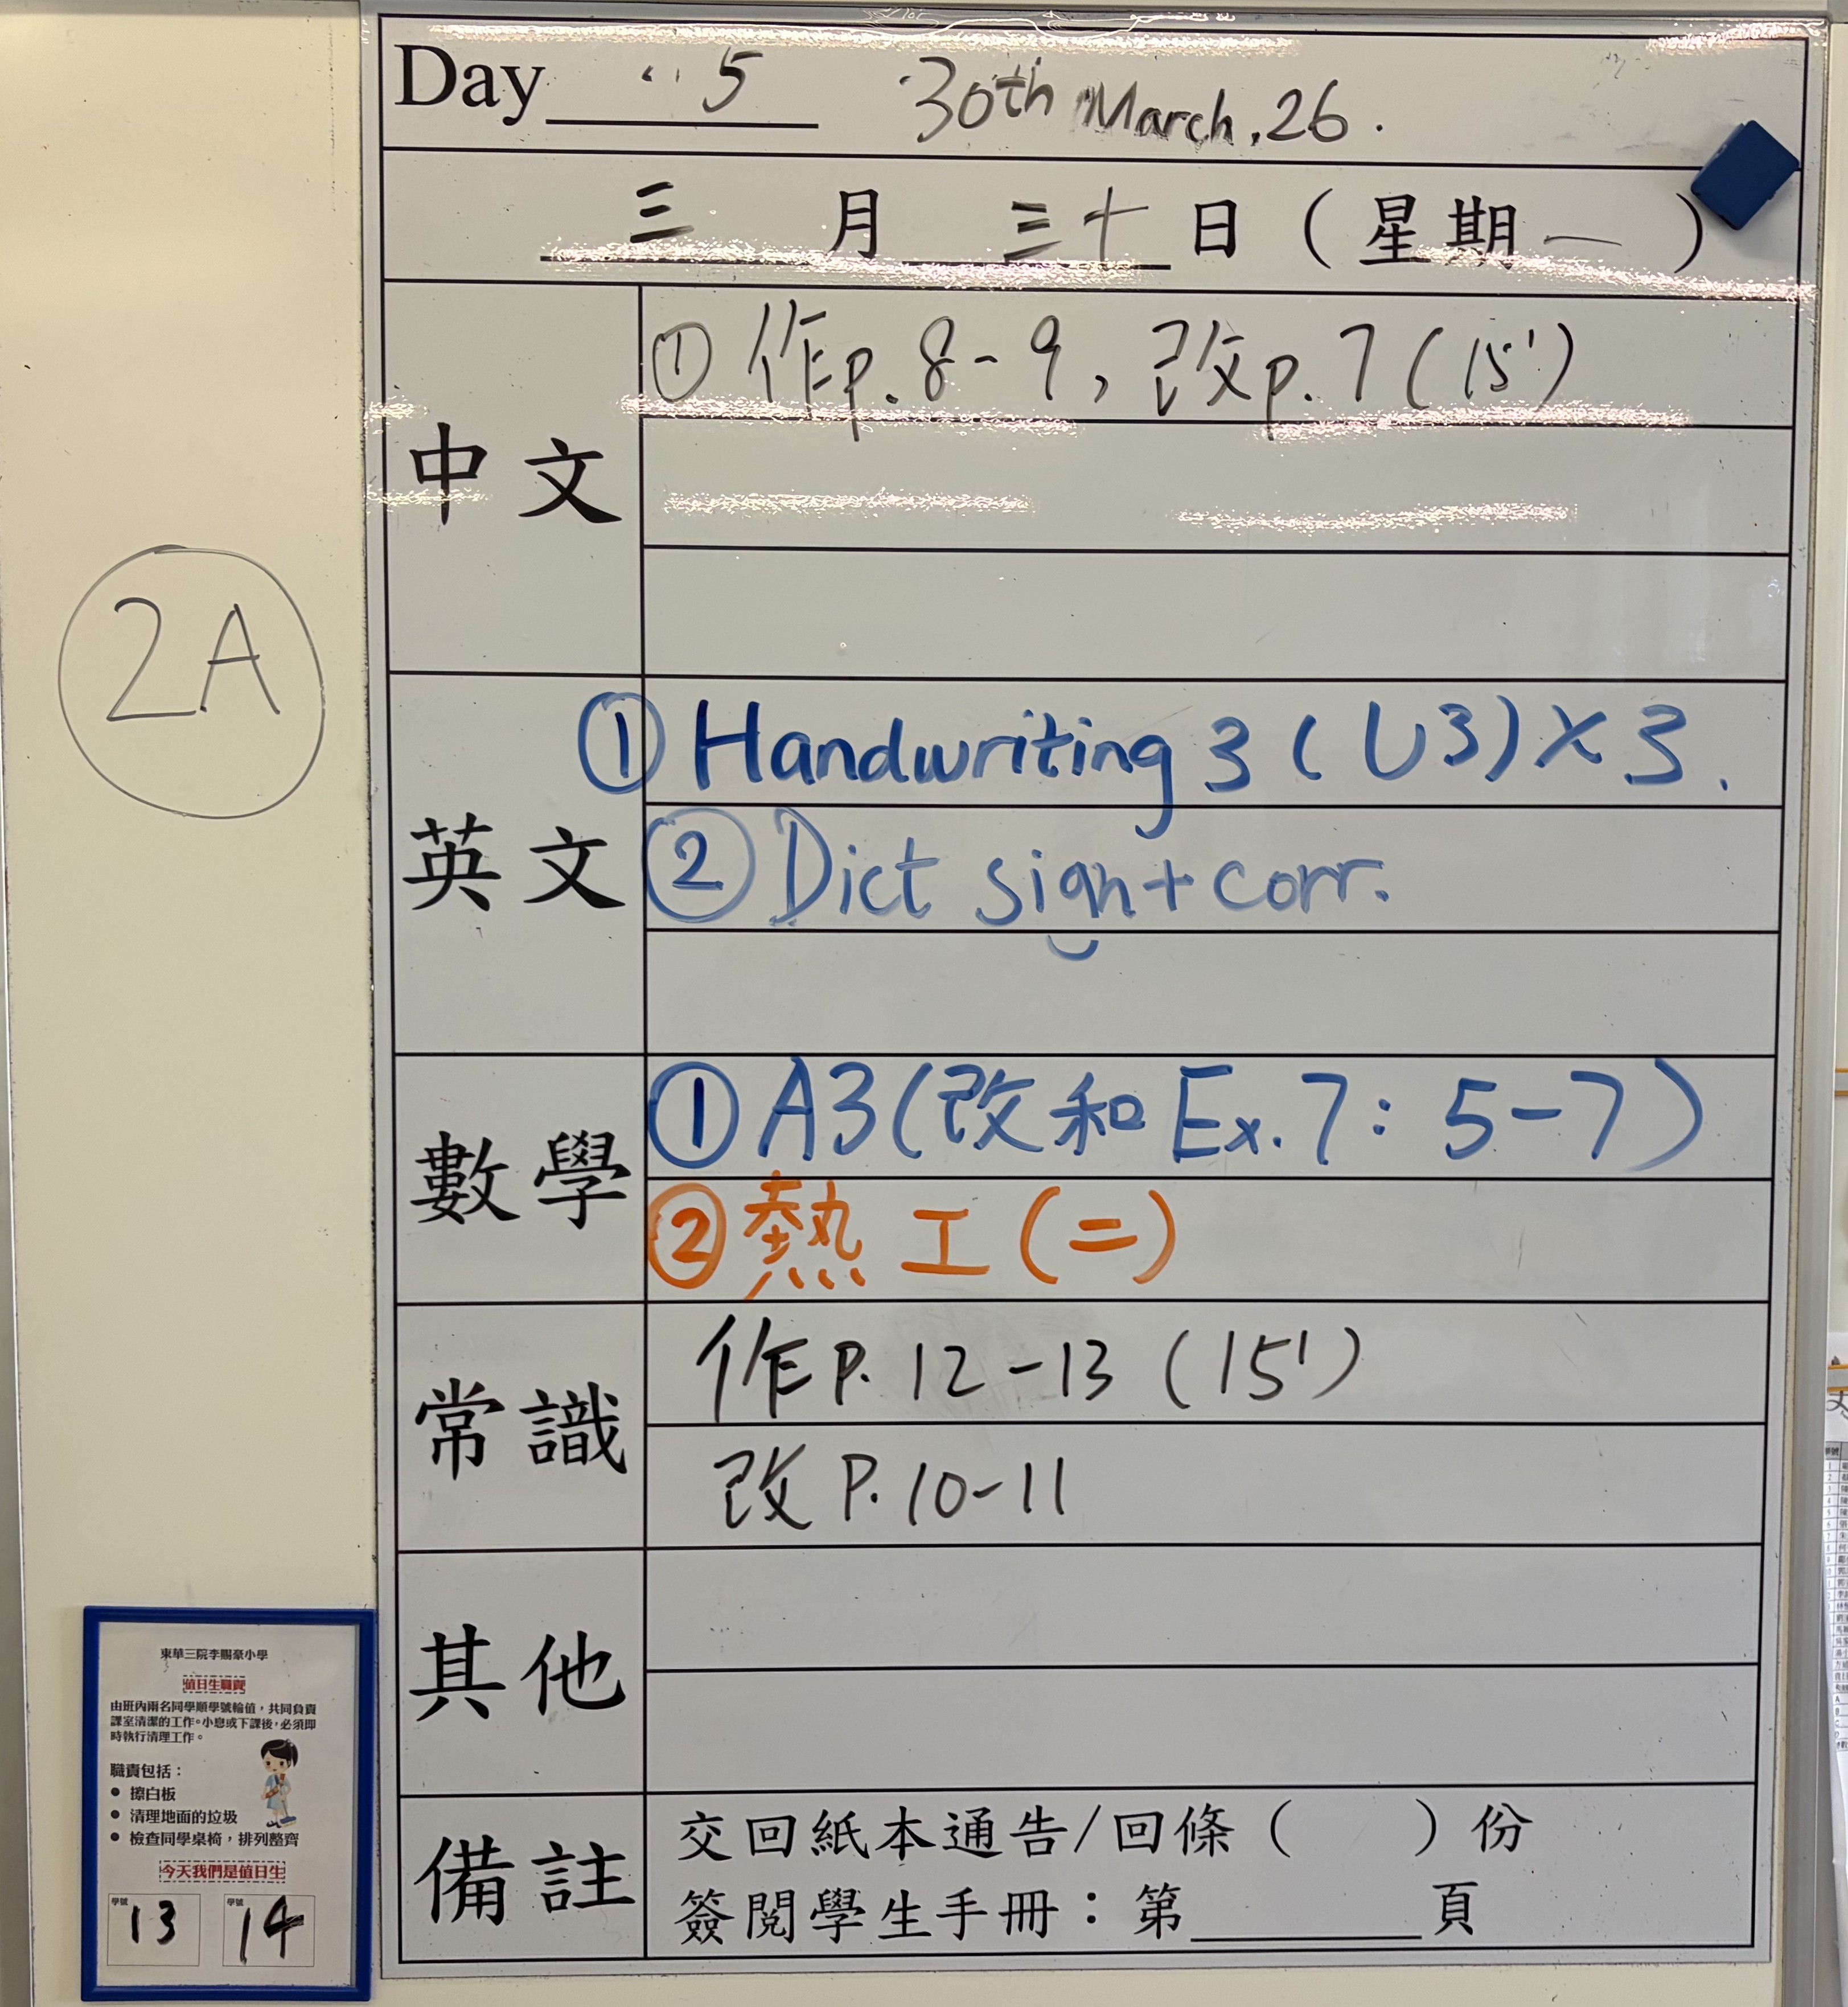 Day 5 30th March, 26.
三 月 三十 日 ( 星期一 )
中文
① 作p. 8-9, 改p. 7 (15')
2A
英文
① Handwriting 3 (U3) × 3.
② Dict sign + corr.
數學
① A3 (改和 Ex. 7: 5-7)
② 熱工(二)
常識
作 P. 12-13 (15')
改 P. 10-11
其他
備註
交回紙本通告/回條( )份
簽閱學生手冊:第____頁
東華三院李賜豪小學
值日生職責
由班內兩名同學順學號輪值,共同負責
課室清潔的工作。小息或下課後,必須即
時執行清理工作。
職責包括:
• 擦白板
• 清理地面的垃圾
• 檢查同學桌椅,排列整齊
今天我們是值日生
學號 13 學號 14